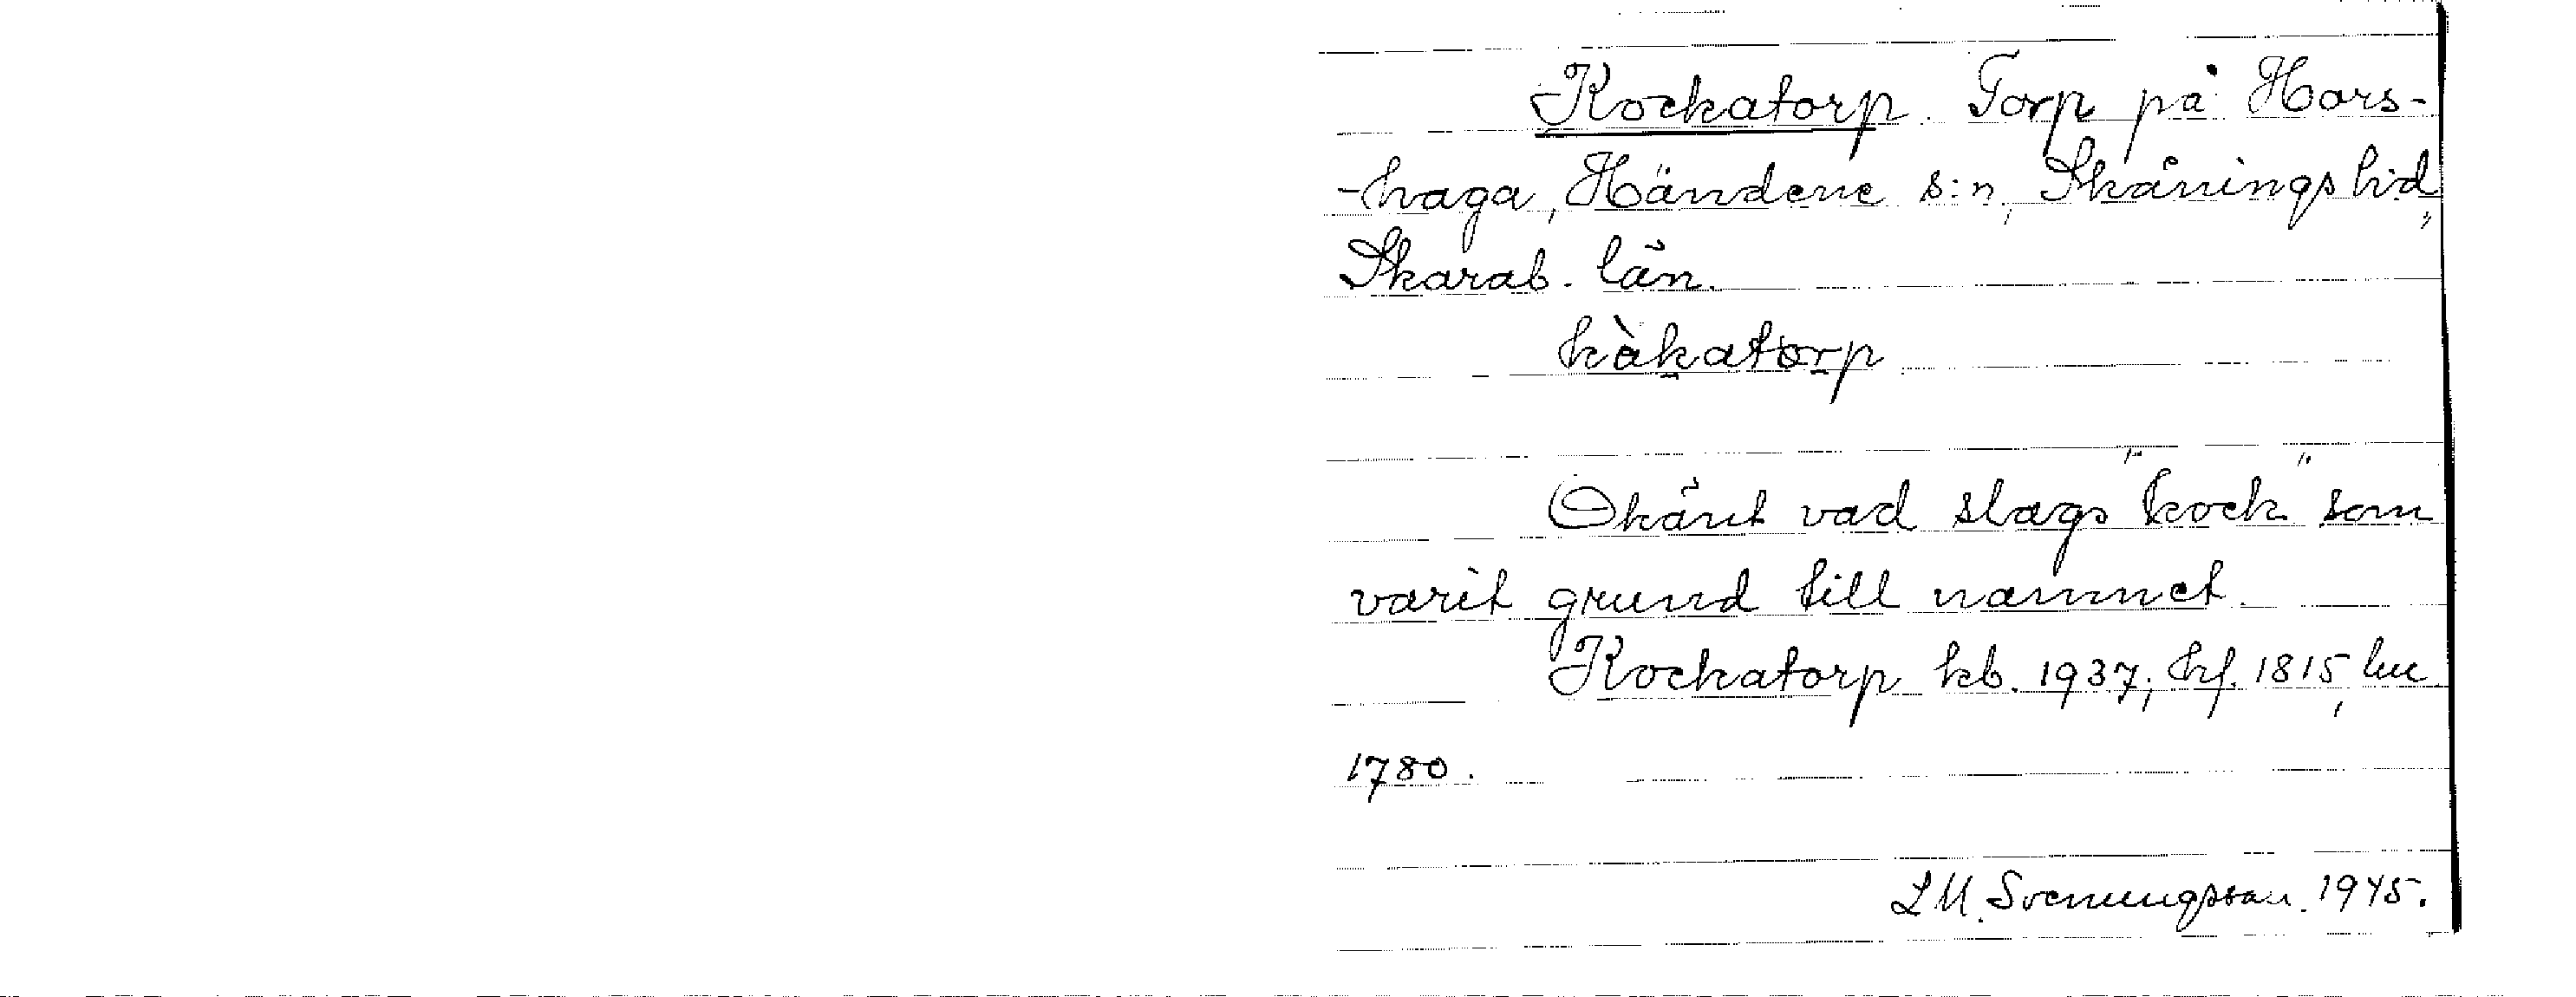 Kockatorp. Torp på Hors-
-haga, Händene s:n, Skånings hd,
Skarab. län.
kàkatorp
Okänt vad slags "kock" som
varit grund till namnet.
Kockatorp kb. 1937; hf. 1815,
1780.
L M. Svenungsson. 1945.